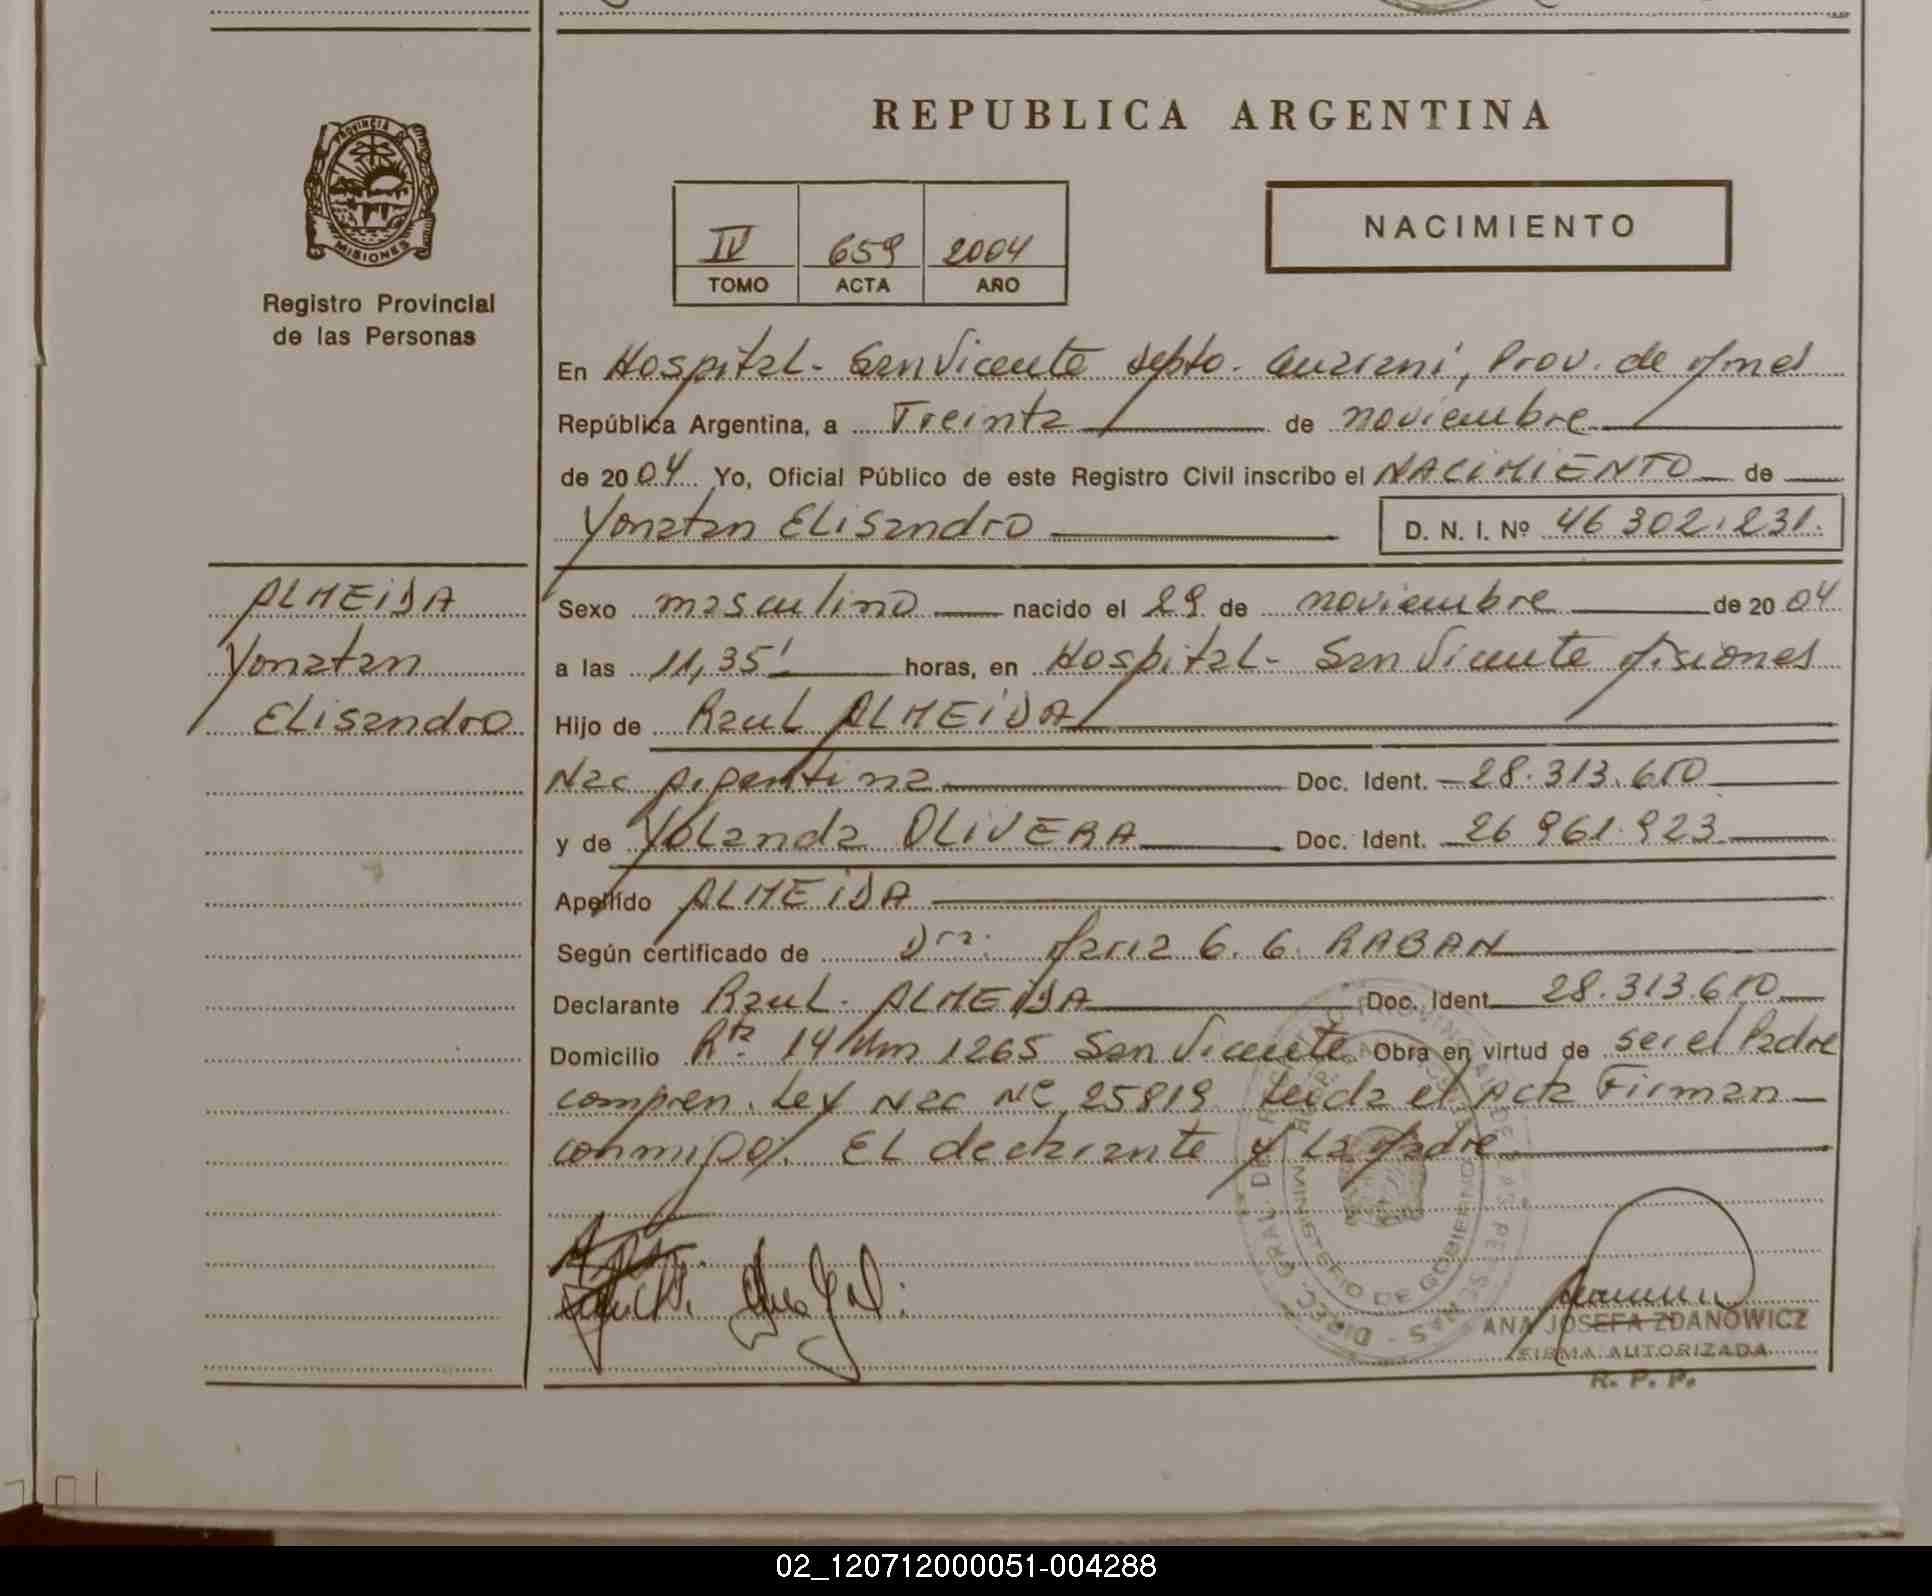 PROVINCIA DE
MISIONES
Registro Provincial
de las Personas
REPUBLICA ARGENTINA
NACIMIENTO
IV 659 2004
TOMO ACTA AÑO
En Hospital - San Vicente depto. Guarani, Prov. de Mnes
República Argentina, a Treinta de noviembre
de 2004 Yo, Oficial Público de este Registro Civil inscribo el NACIMIENTO de
Yonatan Elisandro D. N. I. Nº 46 302.231.
ALMEIDA
Yonatan
Elisandro
Sexo masculino nacido el 29 de noviembre de 2004
a las 11,35' horas, en Hospital - San Vicente Misiones
Hijo de Raul ALMEIDA
Nac Argentina Doc. Ident. 28.313.610
y de Yolanda OLIVERA Doc. Ident. 26 961.923
Apellido ALMEIDA
Según certificado de Dra. Maria G. G. RABAN
Declarante Raul ALMEIDA Doc. Ident 28.313.610
Domicilio Rta. 14 Km 1265 San Vicente Obra en virtud de ser el Padre
compren. Ley Nac Nº 25819 Leida el Acta Firman
conmigo. EL declarante y La Madre
MINISTERIO DE GOBIERNO
ANA JOSEFA ZDANOWICZ
FIRMA AUTORIZADA
R. P. P.
02_120712000051-004288